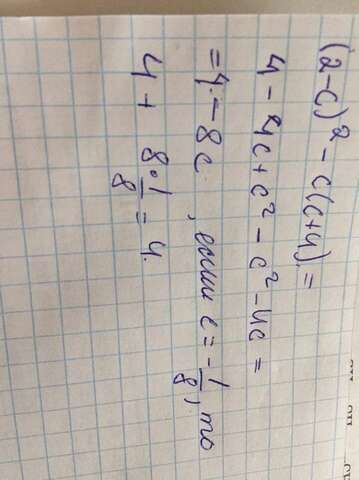 (2-c)² - c(c+4) =
4 - 4c + c² - c² - 4c =
= 4 - 8c , если c = -1/8, то
4 + 8·1/8 = 4.